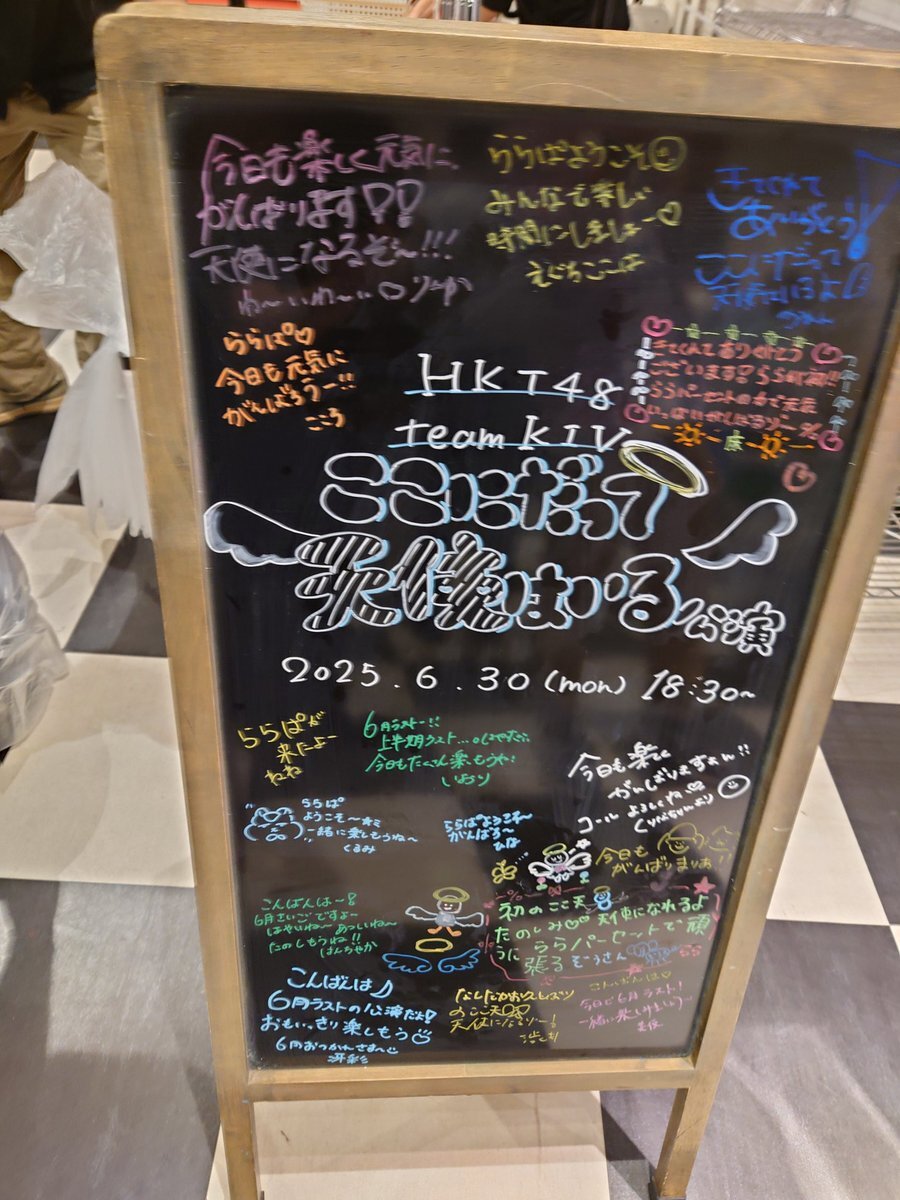 今日も楽しく元気に
がんばります!!
天使になるぞ〜!!!
わ〜いわ〜い
ららぱようこそ
みんなで楽しい
時間にしましょー♡
えぐちここは
きてくれて
ありがとう!
ここにだって
天使はいるよ
ららぱ♡
今日も元気に
がんばろうー!!
こころ
ございます!
HKT48
team KIV
ここにだって
天使はいる公演
2025.6.30(mon) 18:30~
ららぱが
来たよー
ねね
6月ラストー!!
上半期ラスト...
しおり
今日も楽しく
がんばりますぉん!!
コール よろしくね
ららぱ
ようこそ〜
一緒に楽しもうね〜
くるみ
ららぱようこそ〜
がんばろ〜
ひな
今日も
がんばりまりお
こんばんは〜
6月さいごですよ〜
はやいね〜 あついね〜
たのしもうね!!
初のここ天
たのしみ♡天使になれるよ
うに ららパーセントで頑
張るぞうさん
こんばんは♪
6月ラストの公演だよ!
おもいっきり楽しもう
6月おつかれさま〜
冴彩
のここ天
天使になるゾー!
こんばんは♡
今日で6月ラスト!
一緒に楽しみましょう〜